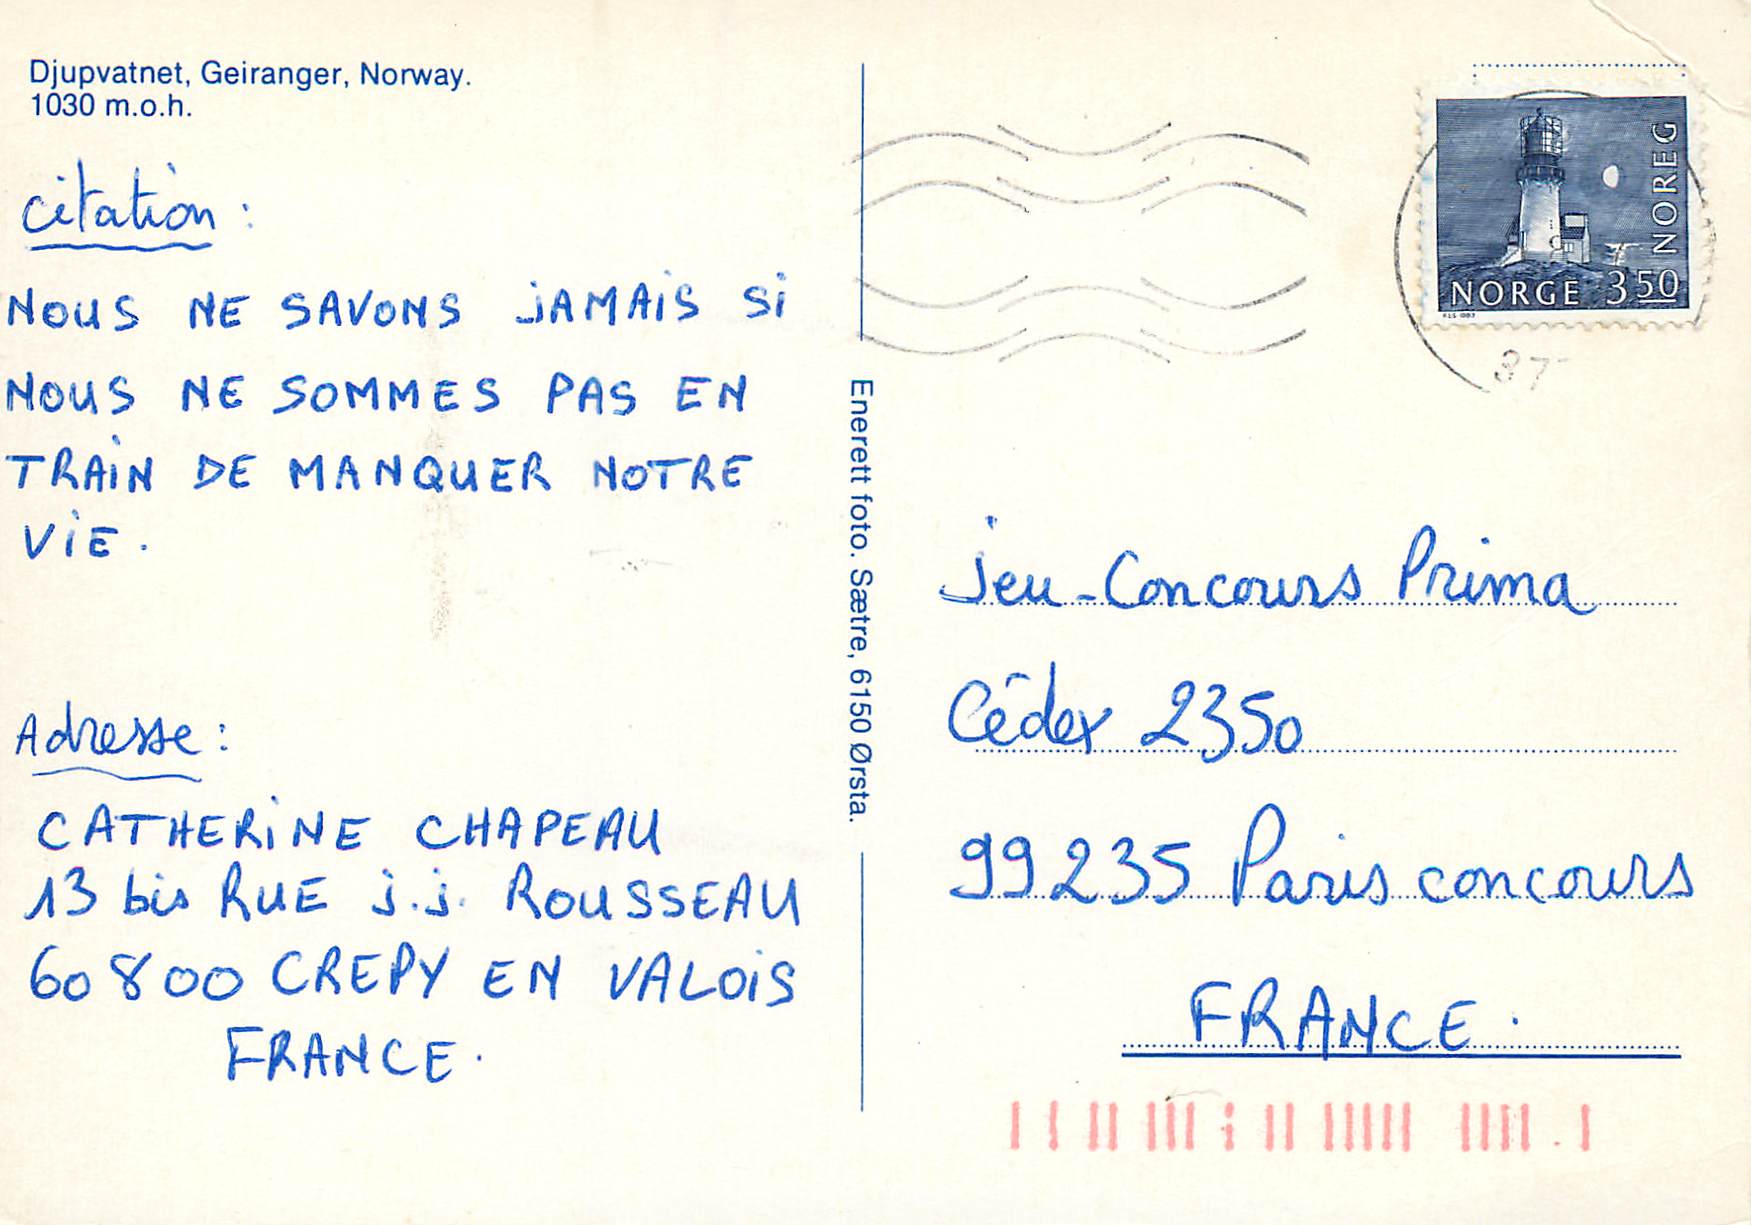 Djupvatnet, Geiranger, Norway.
1030 m.o.h.
Citation :
NOUS NE SAVONS JAMAIS Si
NOUS NE SOMMES PAS EN
TRAiN DE MANQUER NOTRE
ViE.
Adresse :
CATHERiNE CHAPEAU
13 bis RUE J.J. ROUSSEAU
60800 CREPY EN VALOiS
FRANCE.
Enerett foto. Sætre, 6150 Ørsta.
NOREG
NORGE 350
37
Jeu-Concours Prima
Cédex 2350
99235 Paris concours
FRANCE.